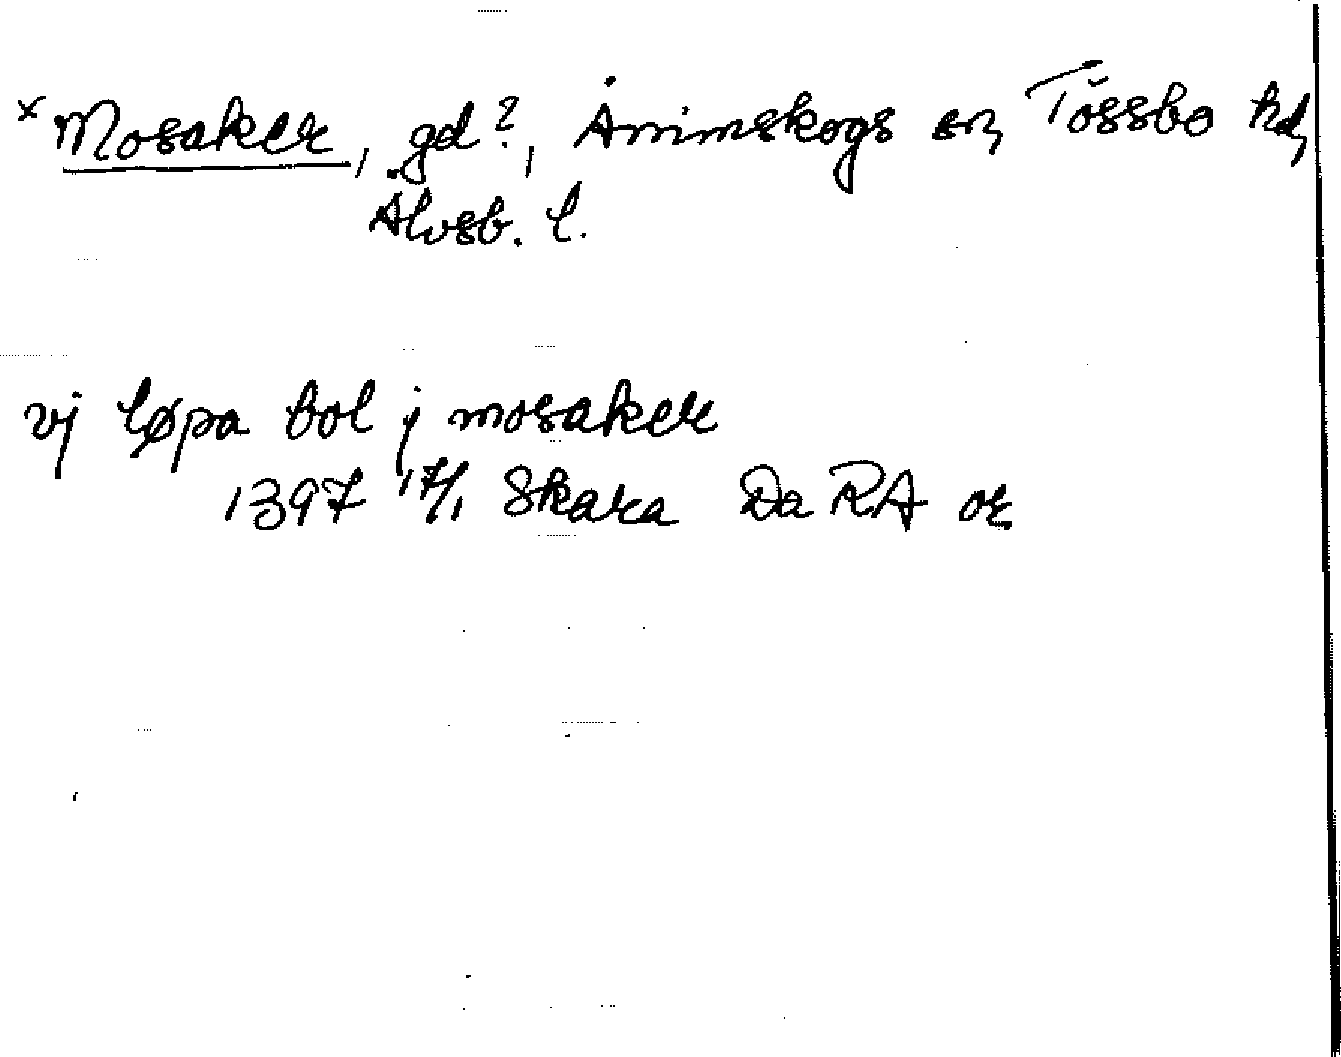 x Mosaker, gd?, Ånimskogs sn, Tössbo hd,
Älvsb. l.
vj løpa bol j mosaker
1397 17/1 Skara Da RA or